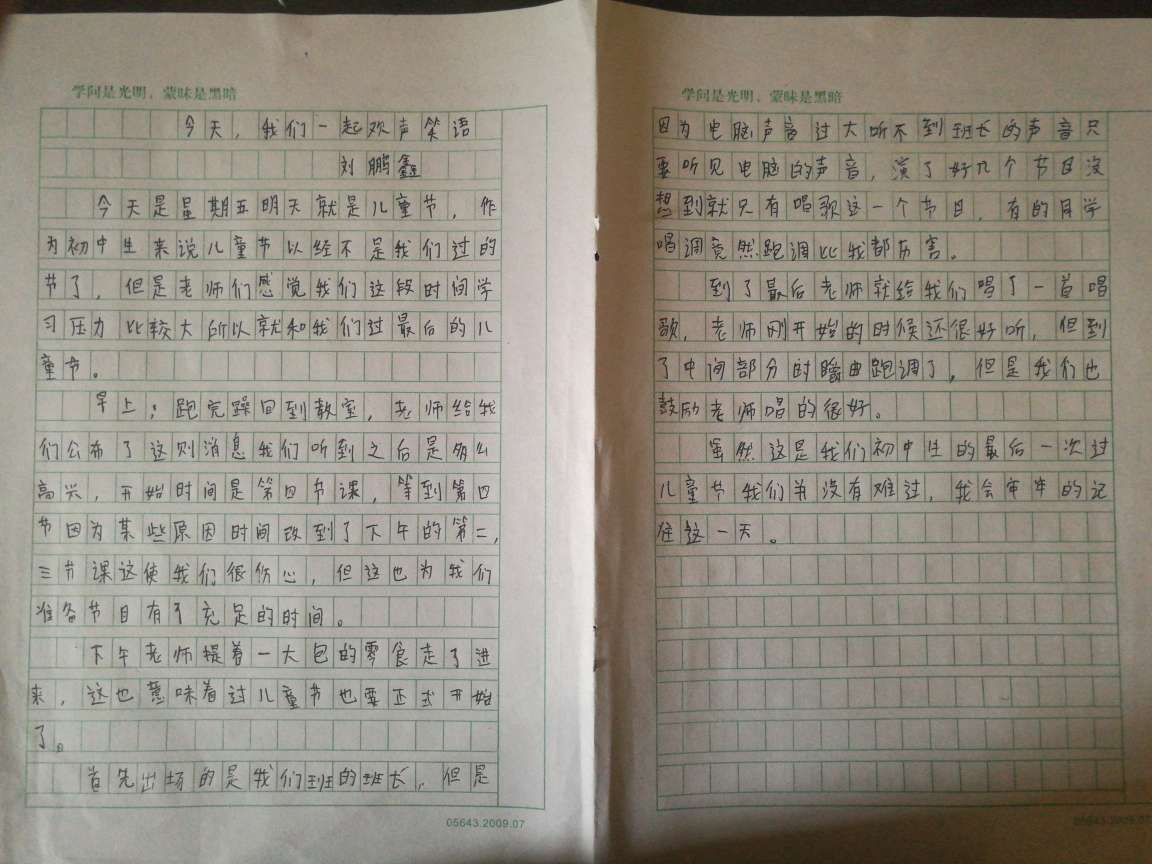 学问是光明，蒙昧是黑暗
今天，我们一起欢声笑语
刘鹏鑫
今天是星期五明天就是儿童节，作
为初中生来说儿童节以经不是我们过的
节了，但是老师们感觉我们这段时间学
习压力比较大所以就和我们过最后的儿
童节。
早上；跑完躁回到教室，老师给我
们公布了这则消息我们听到之后是多么
高兴，开始时间是第四节课，等到第四
节因为某些原因时间改到了下午的第二，
三节课这使我们很伤心，但这也为我们
准备节目有了充足的时间。
下午老师提着一大包的零食走了进
来，这也意味着过儿童节也要正式开始
了。
首先出场的是我们班的班长，但是
05643.2009.07
学问是光明，蒙昧是黑暗
因为电脑声音过大听不到班长的声音只
要听见电脑的声音，演了好几个节目没
想到就只有唱歌这一个节目，有的同学
唱调竟然跑调比我都厉害。
到了最后老师就给我们唱了一首唱
歌，老师刚开始的时候还很好听，但到
了中间部分时曲跑调了，但是我们也
鼓励老师唱的很好。
虽然这是我们初中生的最后一次过
儿童节我们并没有难过，我会牢牢的记
住这一天。
05643.2009.07